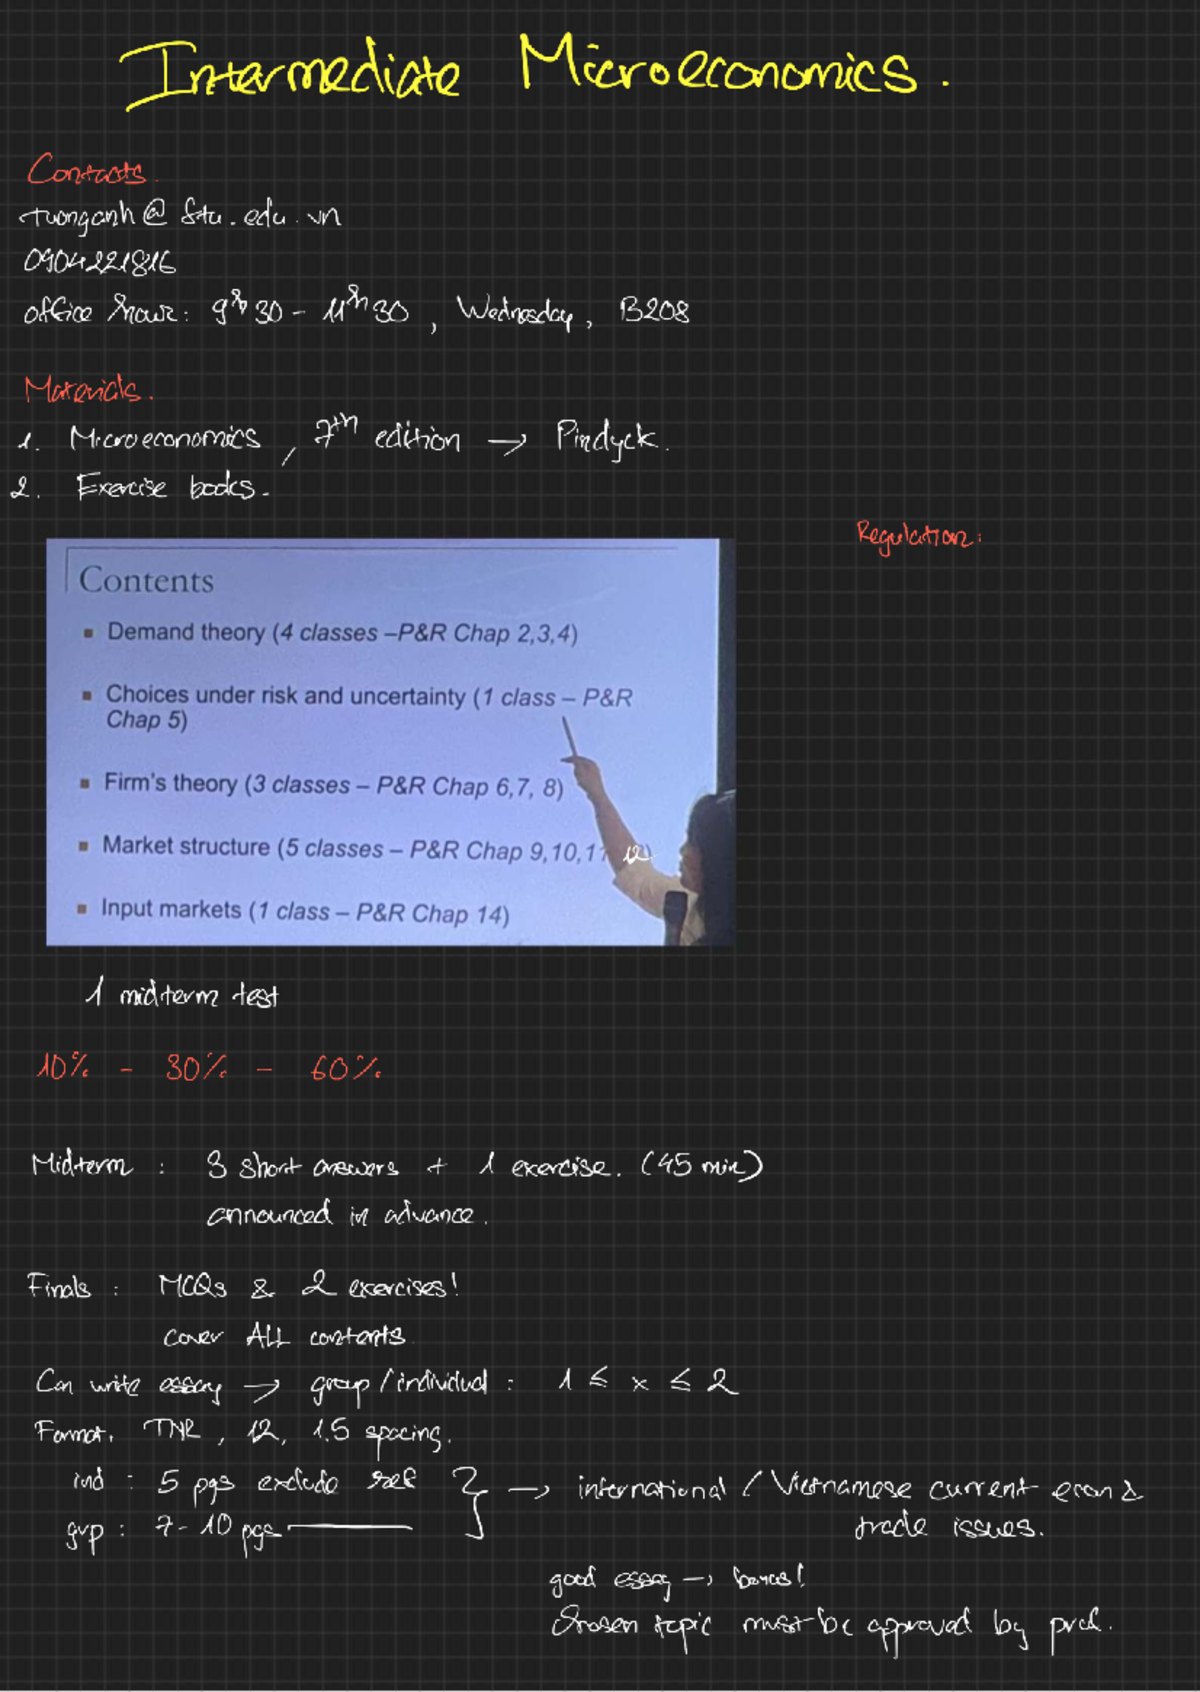 Intermediate Microeconomics.
Contacts.
tuonganh@ftu.edu.vn
0904221816
office hour: 9h30 - 11h30, Wednesday, B208
Materials.
1. Microeconomics, 7th edition → Pindyck.
2. Exercise books.
Regulation:
Contents
▪ Demand theory (4 classes –P&R Chap 2,3,4)
▪ Choices under risk and uncertainty (1 class – P&R
Chap 5)
▪ Firm's theory (3 classes – P&R Chap 6,7, 8)
▪ Market structure (5 classes – P&R Chap 9,10,11 12)
▪ Input markets (1 class – P&R Chap 14)
1 midterm test
10% - 30% - 60%
Midterm : 3 short answers + 1 exercise. (45 min)
announced in advance.
Finals : MCQs & 2 exercises!
cover ALL contents
Can write essay → group/individual : 1 ≤ x ≤ 2
Format. TNR, 12, 1.5 spacing.
ind : 5 pgs exclude ref
grp : 7-10 pgs
→ international / Vietnamese current econ &
trade issues.
good essay → bonus!
Chosen topic must be approved by prof.